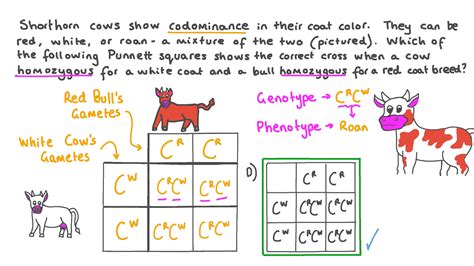 Shorthorn cows show codominance in their coat color. They can be
red, white, or roan - a mixture of the two (pictured). Which of
the following Punnett squares shows the correct cross when a cow
homozygous for a white coat and a bull homozygous for a red coat breed?
Red Bull's
Gametes
Genotype → CᴿCᵂ
Phenotype → Roan
White Cow's
Gametes
Cᴿ Cᴿ
Cᵂ CᴿCᵂ CᴿCᵂ
Cᵂ CᴿCᵂ CᴿCᵂ
D)
Cᴿ Cᴿ
Cᵂ CᴿCᵂ CᴿCᵂ
Cᵂ CᴿCᵂ CᴿCᵂ